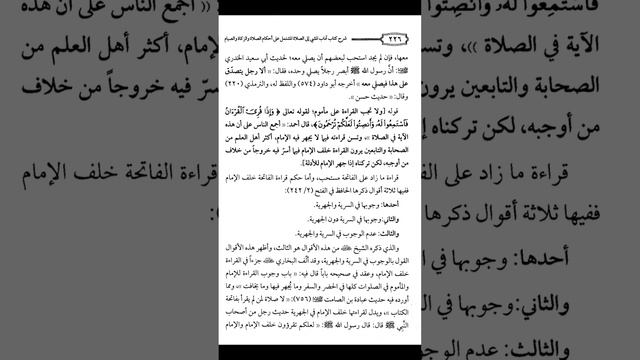 ٢٢٦
شرح كتاب آداب المشي إلى الصلاة المشتمل على أحكام الصلاة والزكاة والصيام
معها، فإن لم يجد استحب لبعضهم أن يصلي معه؛ لحديث أبي سعيد الخدري
ﷺ: أنَّ رسول الله ﷺ أبصر رجلاً يصلي وحده، فقال: « ألا رجل يتصدّق
على هذا فيصلي معه » أخرجه أبو داود (٥٧٤) واللفظ له، والترمذي (٢٢٠)
وقال: « حديث حسن ».
قوله [ولا تجب القراءة على مأموم؛ لقوله تعالى ﴿ وَإِذَا قُرِئَ ٱلْقُرْءَانُ
فَٱسْتَمِعُوا۟ لَهُۥ وَأَنصِتُوا۟ لَعَلَّكُمْ تُرْحَمُونَ ﴾، قال أحمد: « أجمع الناس على أن هذه
الآية في الصلاة »، وتسن قراءته فيما لا يجهر فيه الإمام، أكثر أهل العلم من
الصحابة والتابعين يرون القراءة خلف الإمام فيما أسرّ فيه خروجاً من خلاف
من أوجبه، لكن تركناه إذا جهر الإمام للأدلة].
قراءة ما زاد على الفاتحة مستحب، وأما حكم قراءة الفاتحة خلف الإمام
ففيها ثلاثة أقوال ذكرها الحافظ في الفتح (٢/ ٢٤٢):
أحدها: وجوبها في السرية والجهرية.
والثاني: وجوبها في السرية دون الجهرية.
والثالث: عدم الوجوب في السرية والجهرية.
والذي ذكره الشيخ من هذه الأقوال هو الثالث، وأظهر هذه الأقوال
القول بالوجوب في السرية والجهرية، وقد ألّف البخاري جزءاً في القراءة
خلف الإمام، وعقد في صحيحه باباً قال فيه: « باب وجوب القراءة للإمام
والمأموم في الصلوات كلها في الحضر والسفر وما يُجهر فيها وما يخافت »، ومما
أورده فيه حديث عبادة بن الصامت (٧٥٦): « لا صلاة لمن لم يقرأ بفاتحة
الكتاب »، ويدل لقراءتها خلف الإمام في الجهرية حديث رجل من أصحاب
النَّبي ﷺ قال: قال رسول الله ﷺ: « لعلكم تقرؤون خلف الإمام والإمام